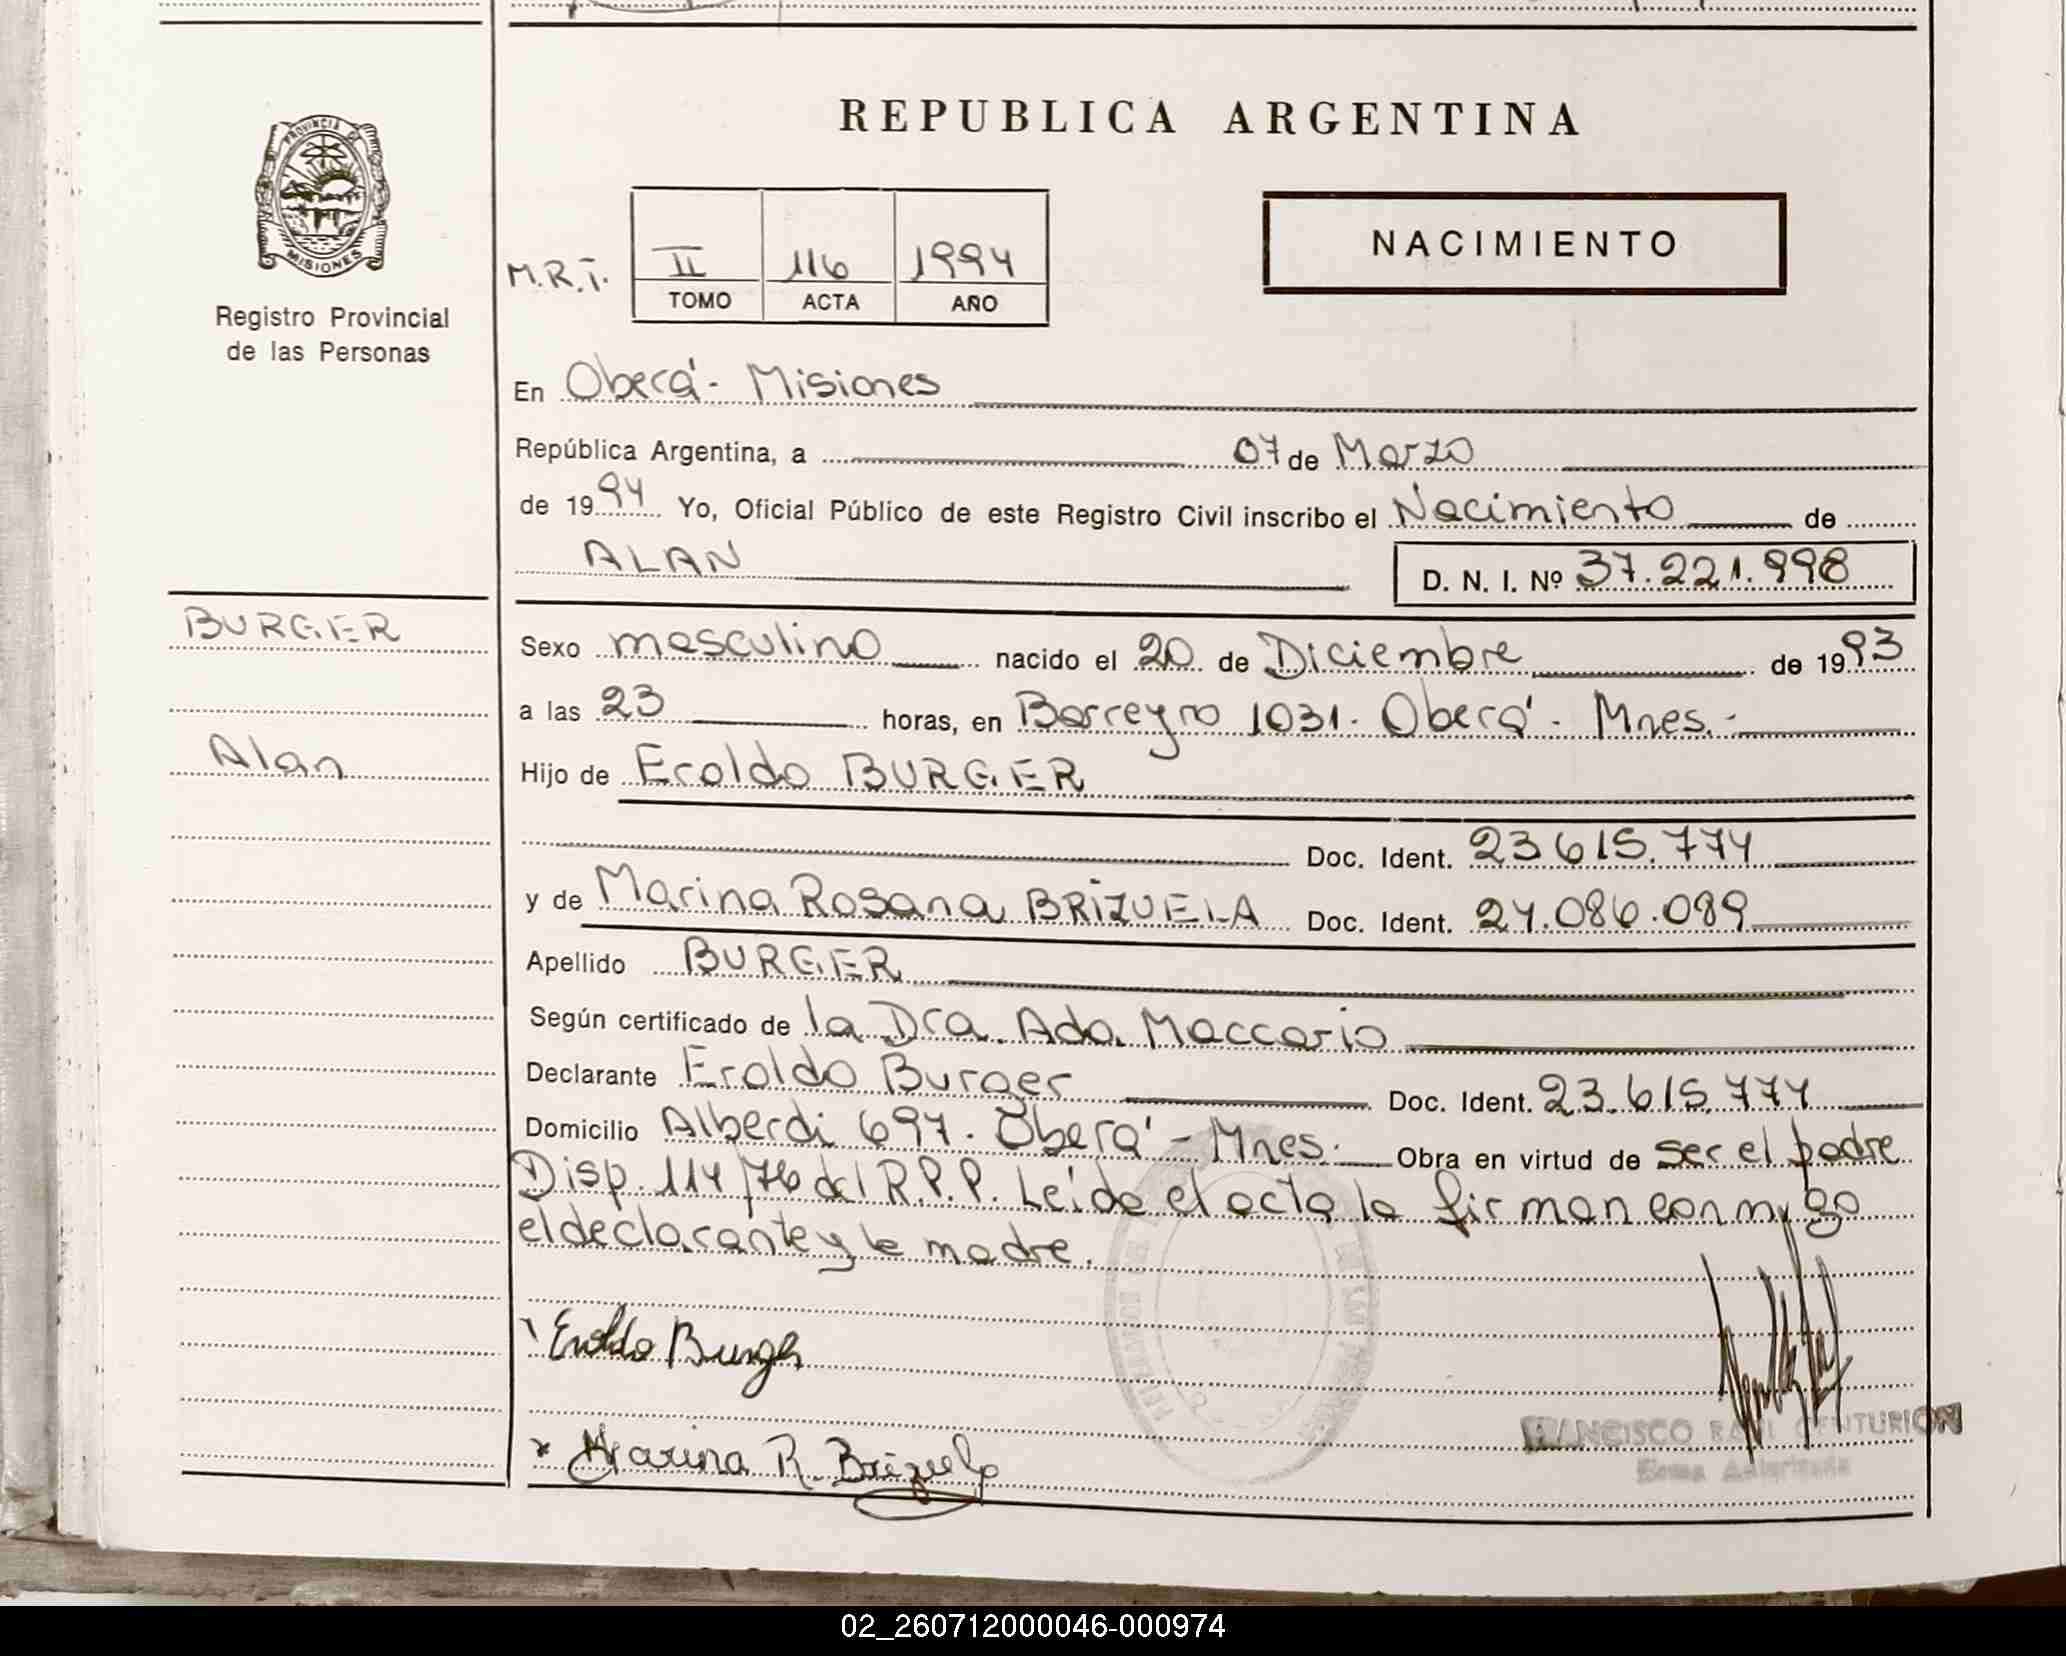 REPUBLICA ARGENTINA
PROVINCIA DE
MISIONES
Registro Provincial
de las Personas
M.R.I. II 116 1994
TOMO ACTA AÑO
NACIMIENTO
En Oberá - Misiones
República Argentina, a 07 de Marzo
de 1994 Yo, Oficial Público de este Registro Civil inscribo el Nacimiento de
ALAN D. N. I. Nº 37.221.998
BURGER
Sexo masculino nacido el 20 de Diciembre de 1993
a las 23 horas, en Barreyro 1031. Oberá - Mnes.-
Alan
Hijo de Eroldo BURGER
Doc. Ident. 23615.774
y de Marina Rosana BRIZUELA Doc. Ident. 24.086.089
Apellido BURGER
Según certificado de la Dra. Ada Maccario
Declarante Eroldo Burger Doc. Ident. 23.615.774
Domicilio Alberdi 697. Oberá - Mnes. Obra en virtud de ser el padre
Disp. 114/76 del R.P.P. Leída el acta la firman conmigo
el declarante y la madre.
Eroldo Burger
Marina R. Brizuela
FRANCISCO RAUL CENTURION
Firma Autorizada
02_260712000046-000974